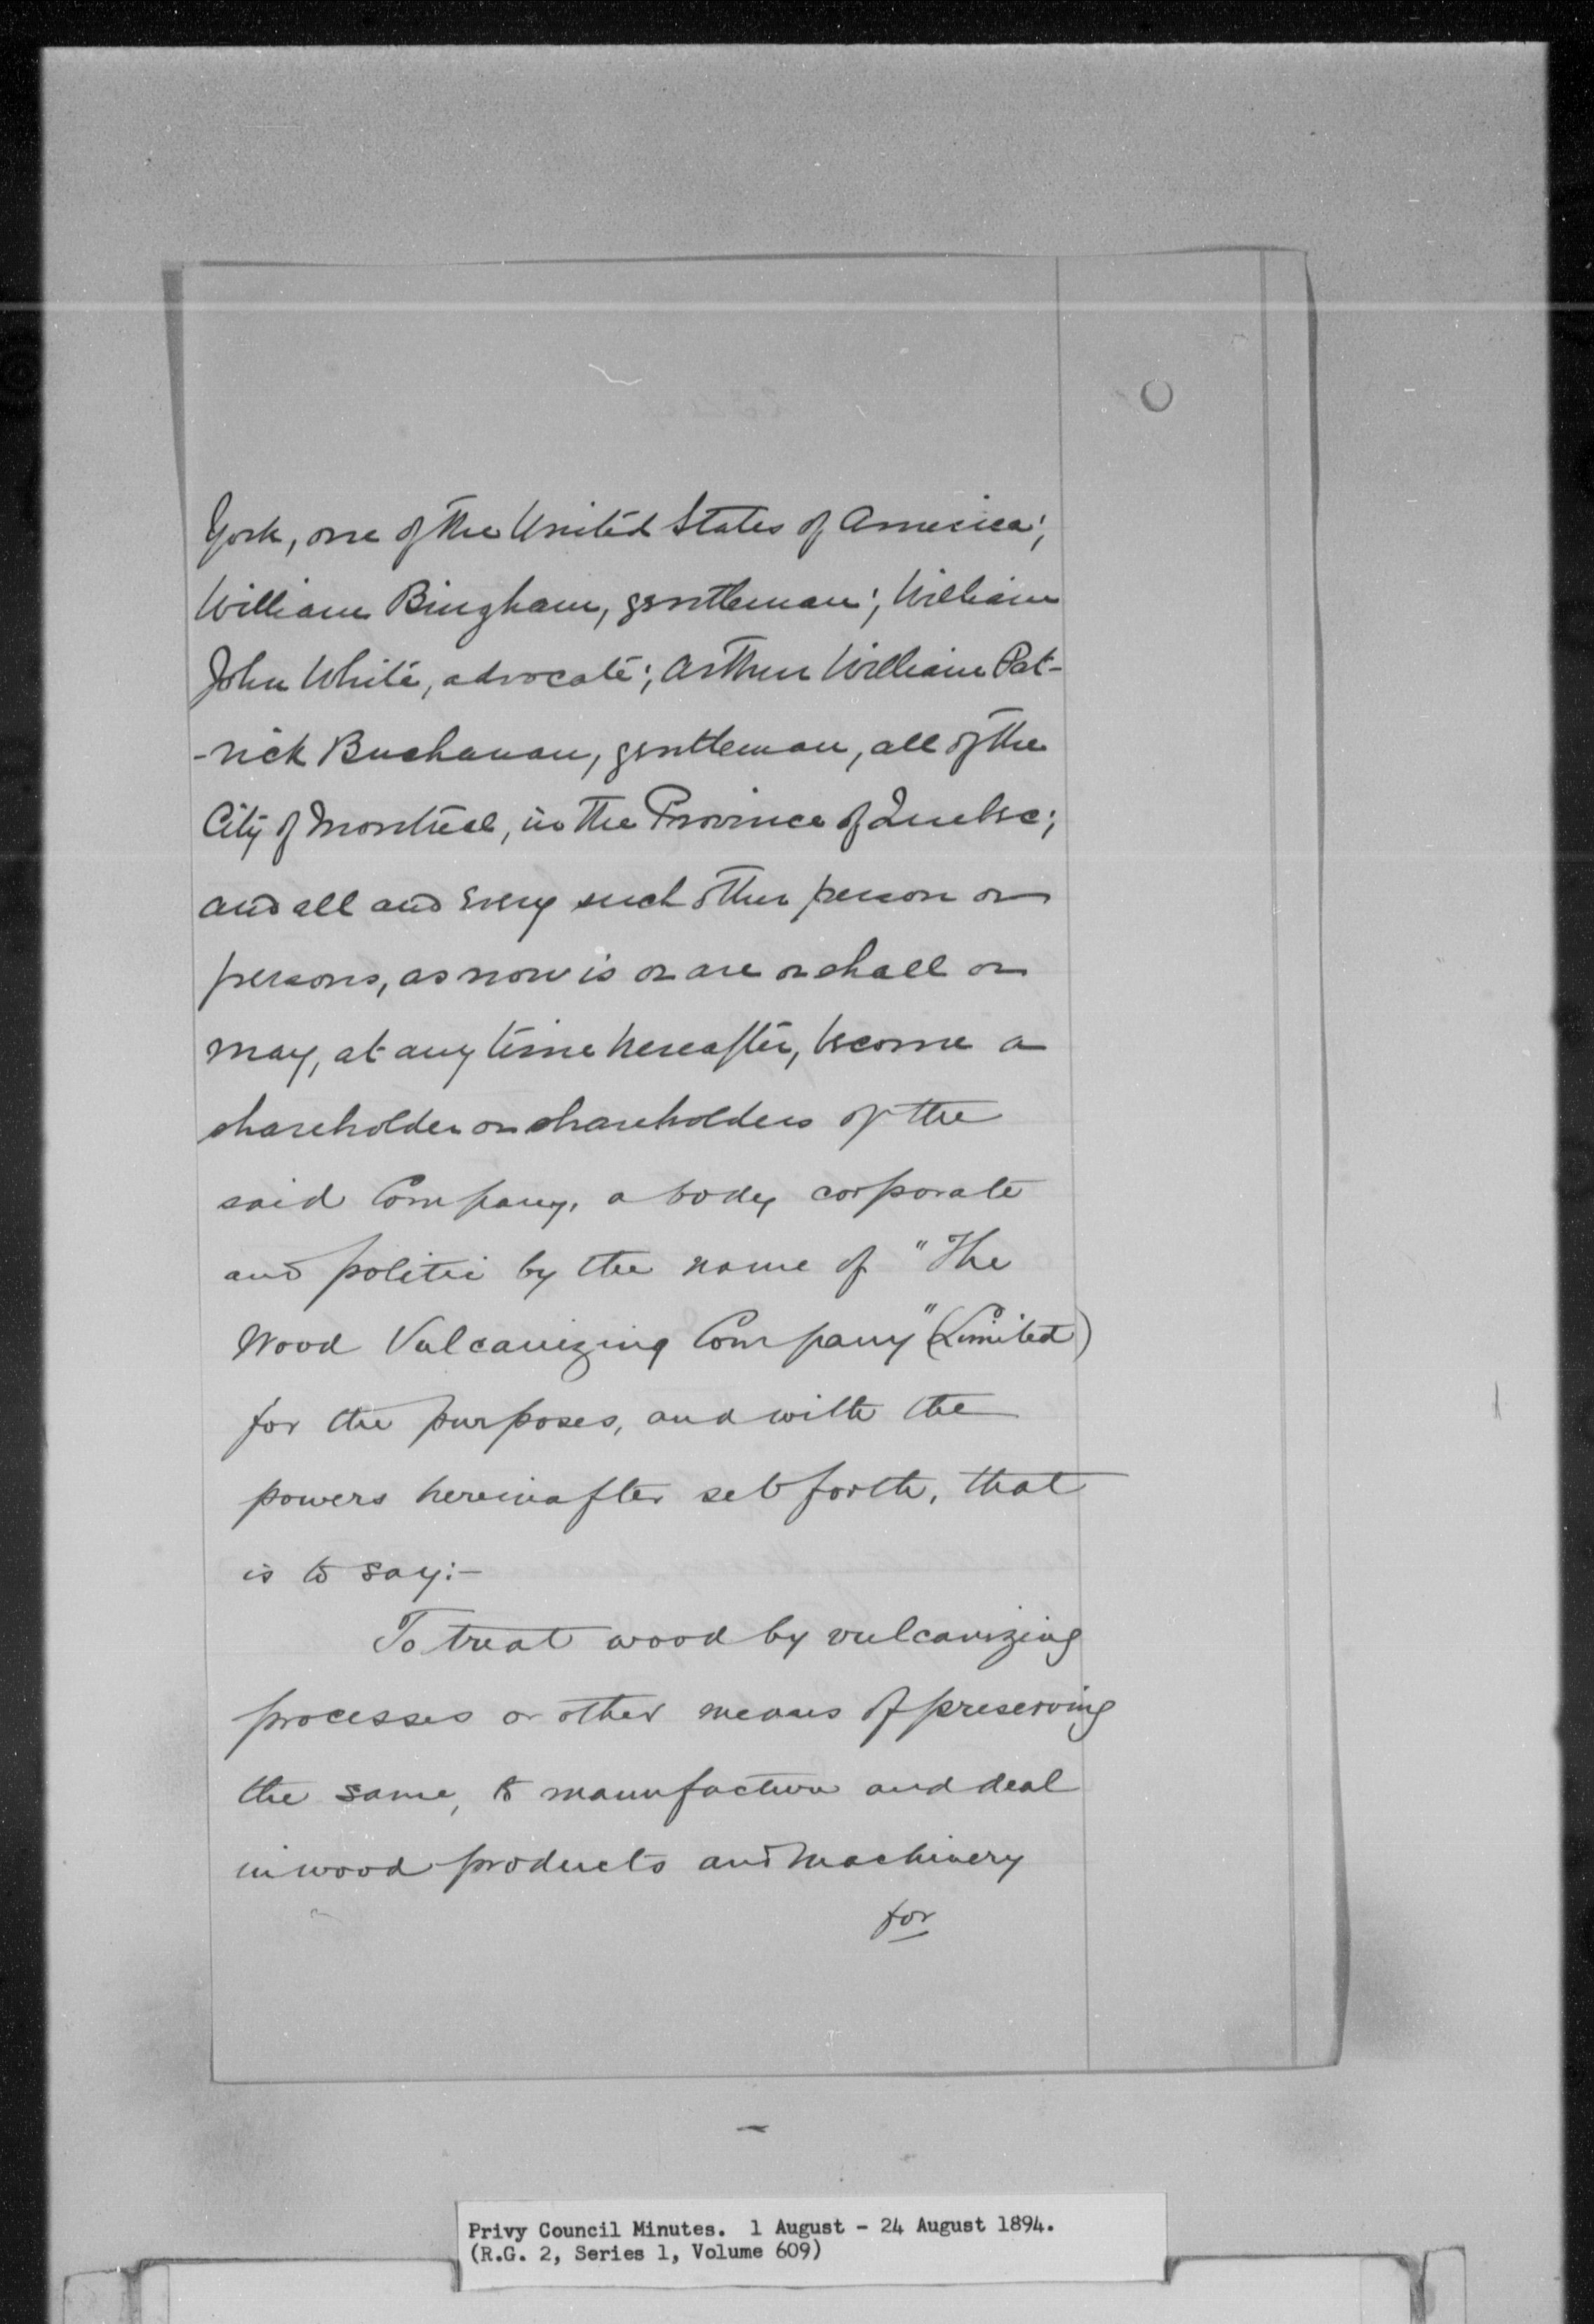 York, one of the United States of America;
William Bingham, gentleman; William
John White, advocate; Arthur William Pat-
-rick Buchanan, gentleman, all of the
City of Montreal, in the Province of Quebec;
and all and every such other person or
persons, as now is or are or shall or
may, at any time hereafter, become a
shareholder or shareholders of the
said Company, a body corporate
and politic by the name of "The
Wood Vulcanizing Company" (Limited)
for the purposes, and with the
powers hereinafter set forth, that
is to say:-
To treat wood by vulcanizing
processes or other means of preserving
the same, to manufacture and deal
in wood products and machinery
for
Privy Council Minutes. 1 August - 24 August 1894.
(R.G. 2, Series 1, Volume 609)